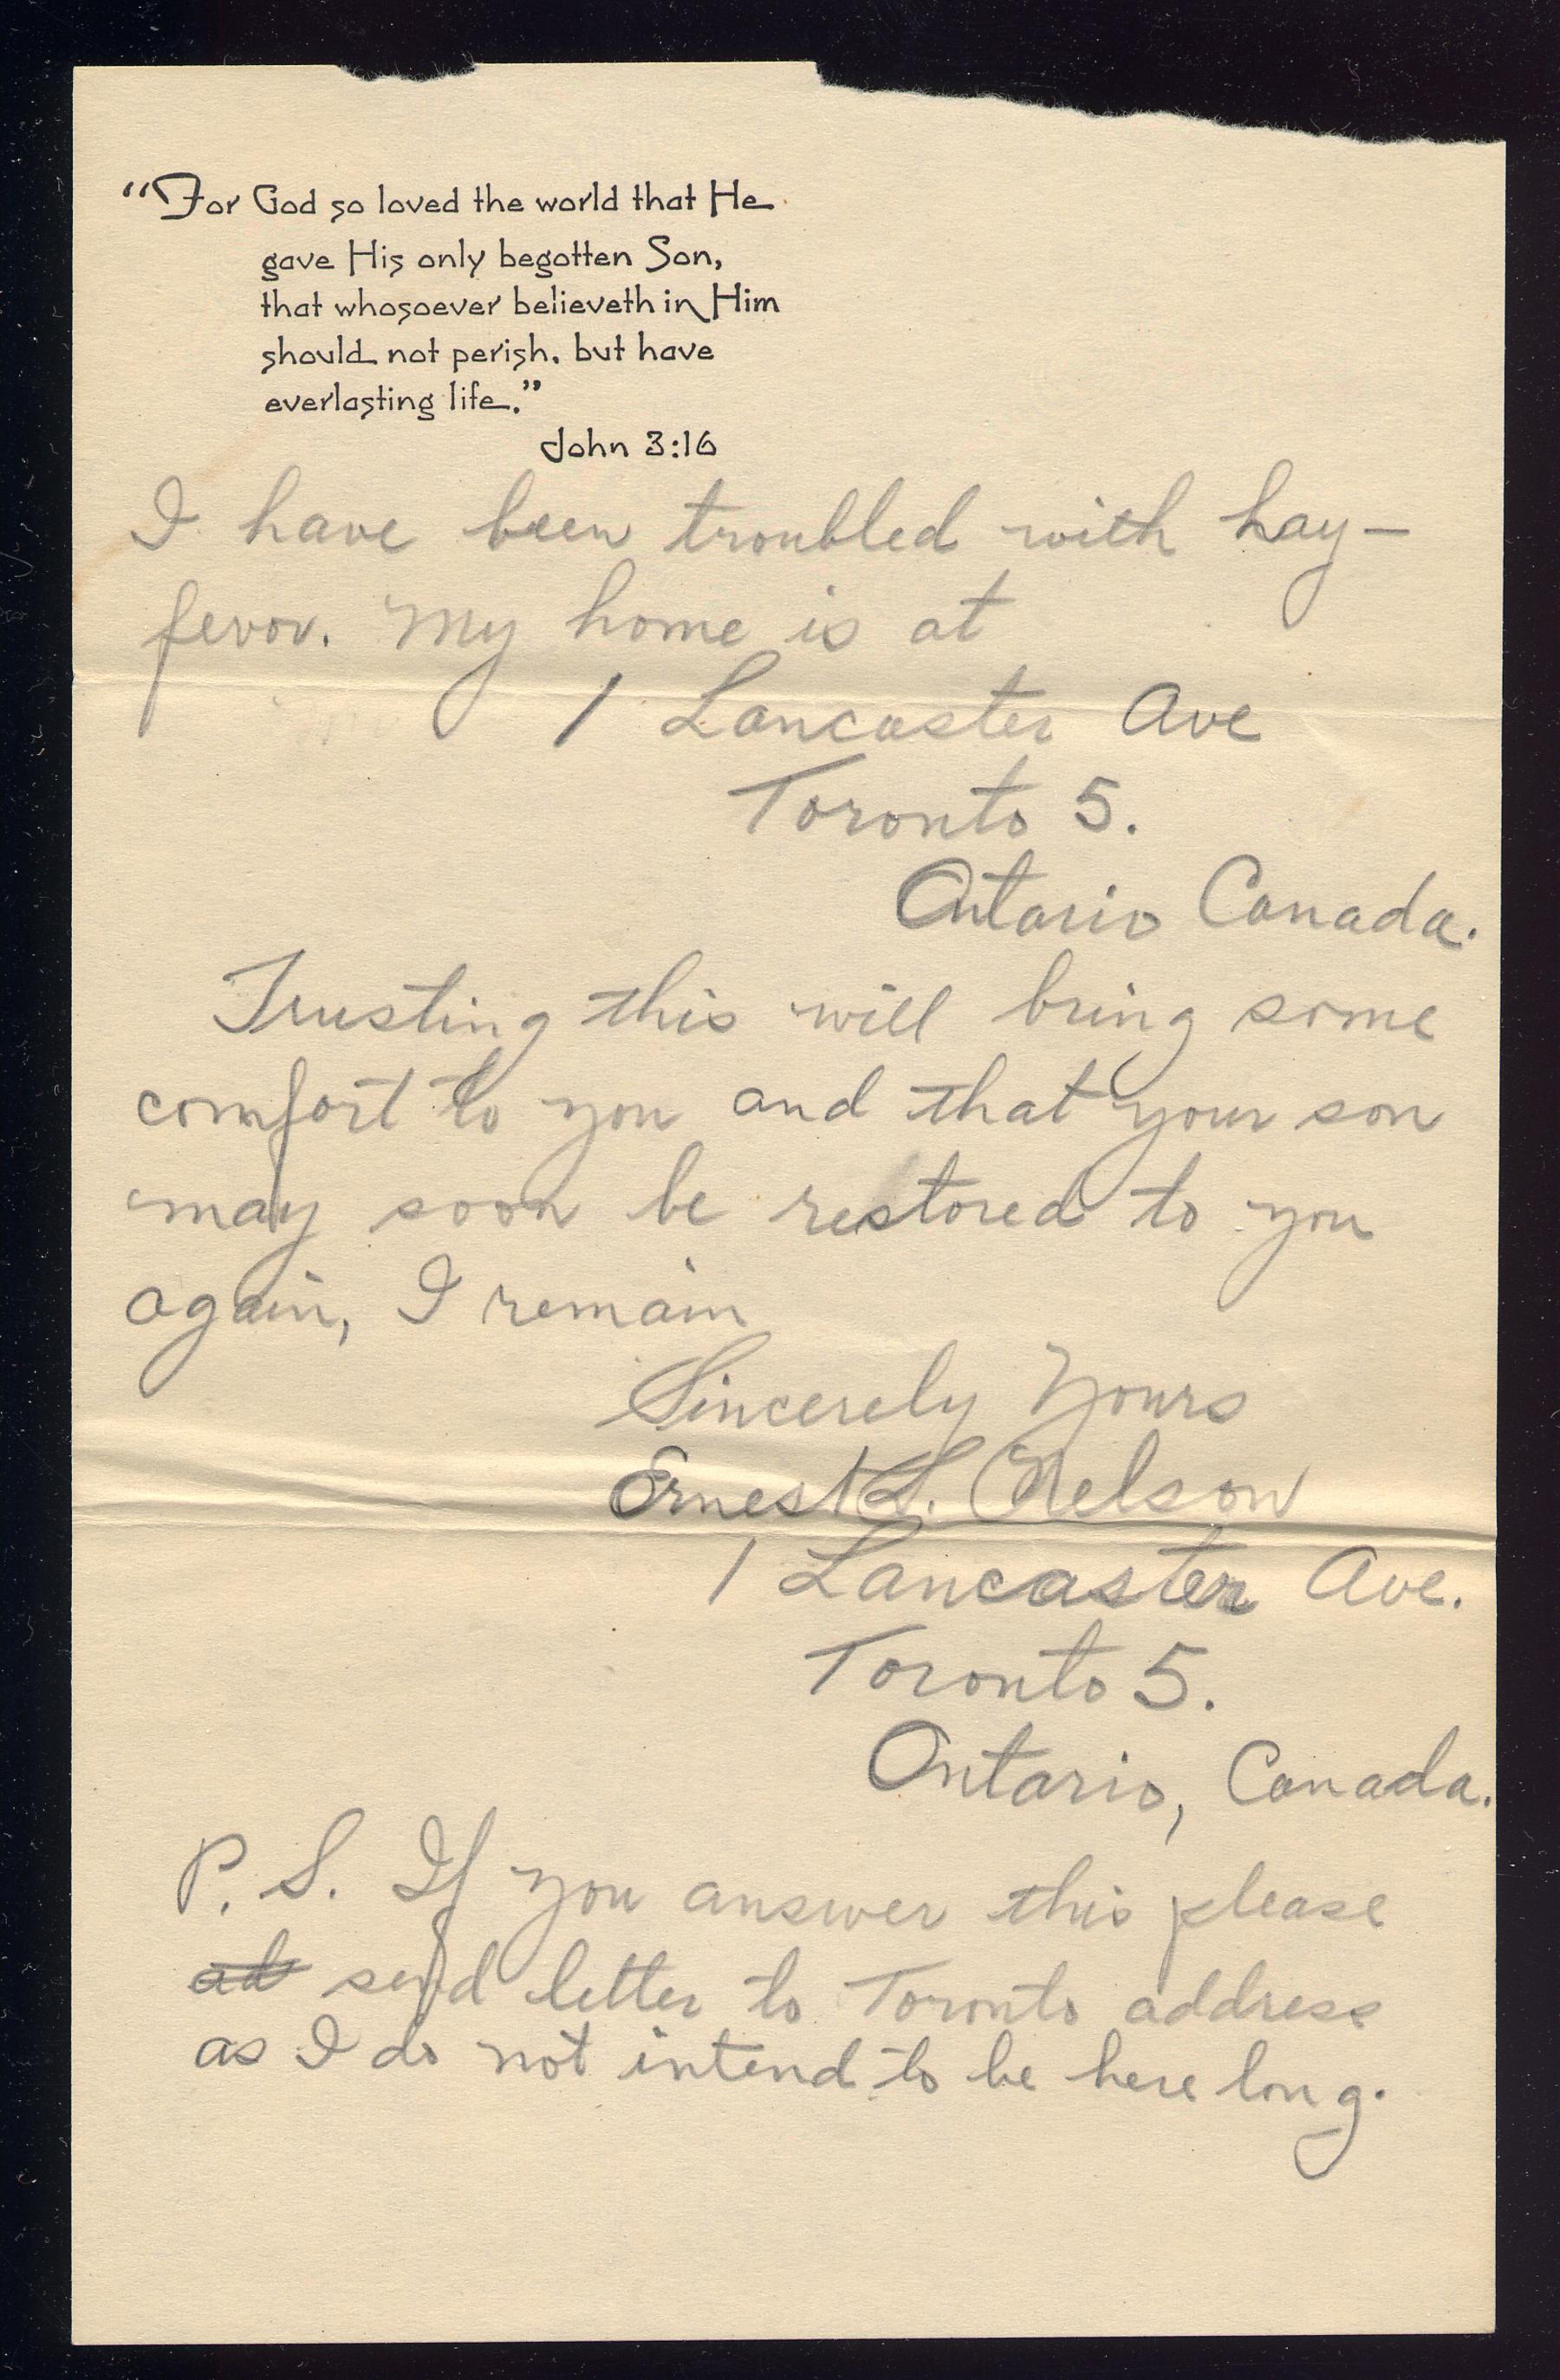 "For God so loved the world that He
gave His only begotten Son,
that whosoever believeth in Him
should not perish. but have
everlasting life."
John 3:16
I have been troubled with hay-
fevor. My home is at
1 Lancaster Ave
Toronto 5.
Ontario Canada.
Trusting this will bring some
comfort to you and that your son
may soon be restored to you
again, I remain
Sincerely Yours
Ernest L. Nelson
1 Lancaster Ave.
Toronto 5.
Ontario, Canada.
P. S. If you answer this please
send letter to Toronto address
as I do not intend to be here long.